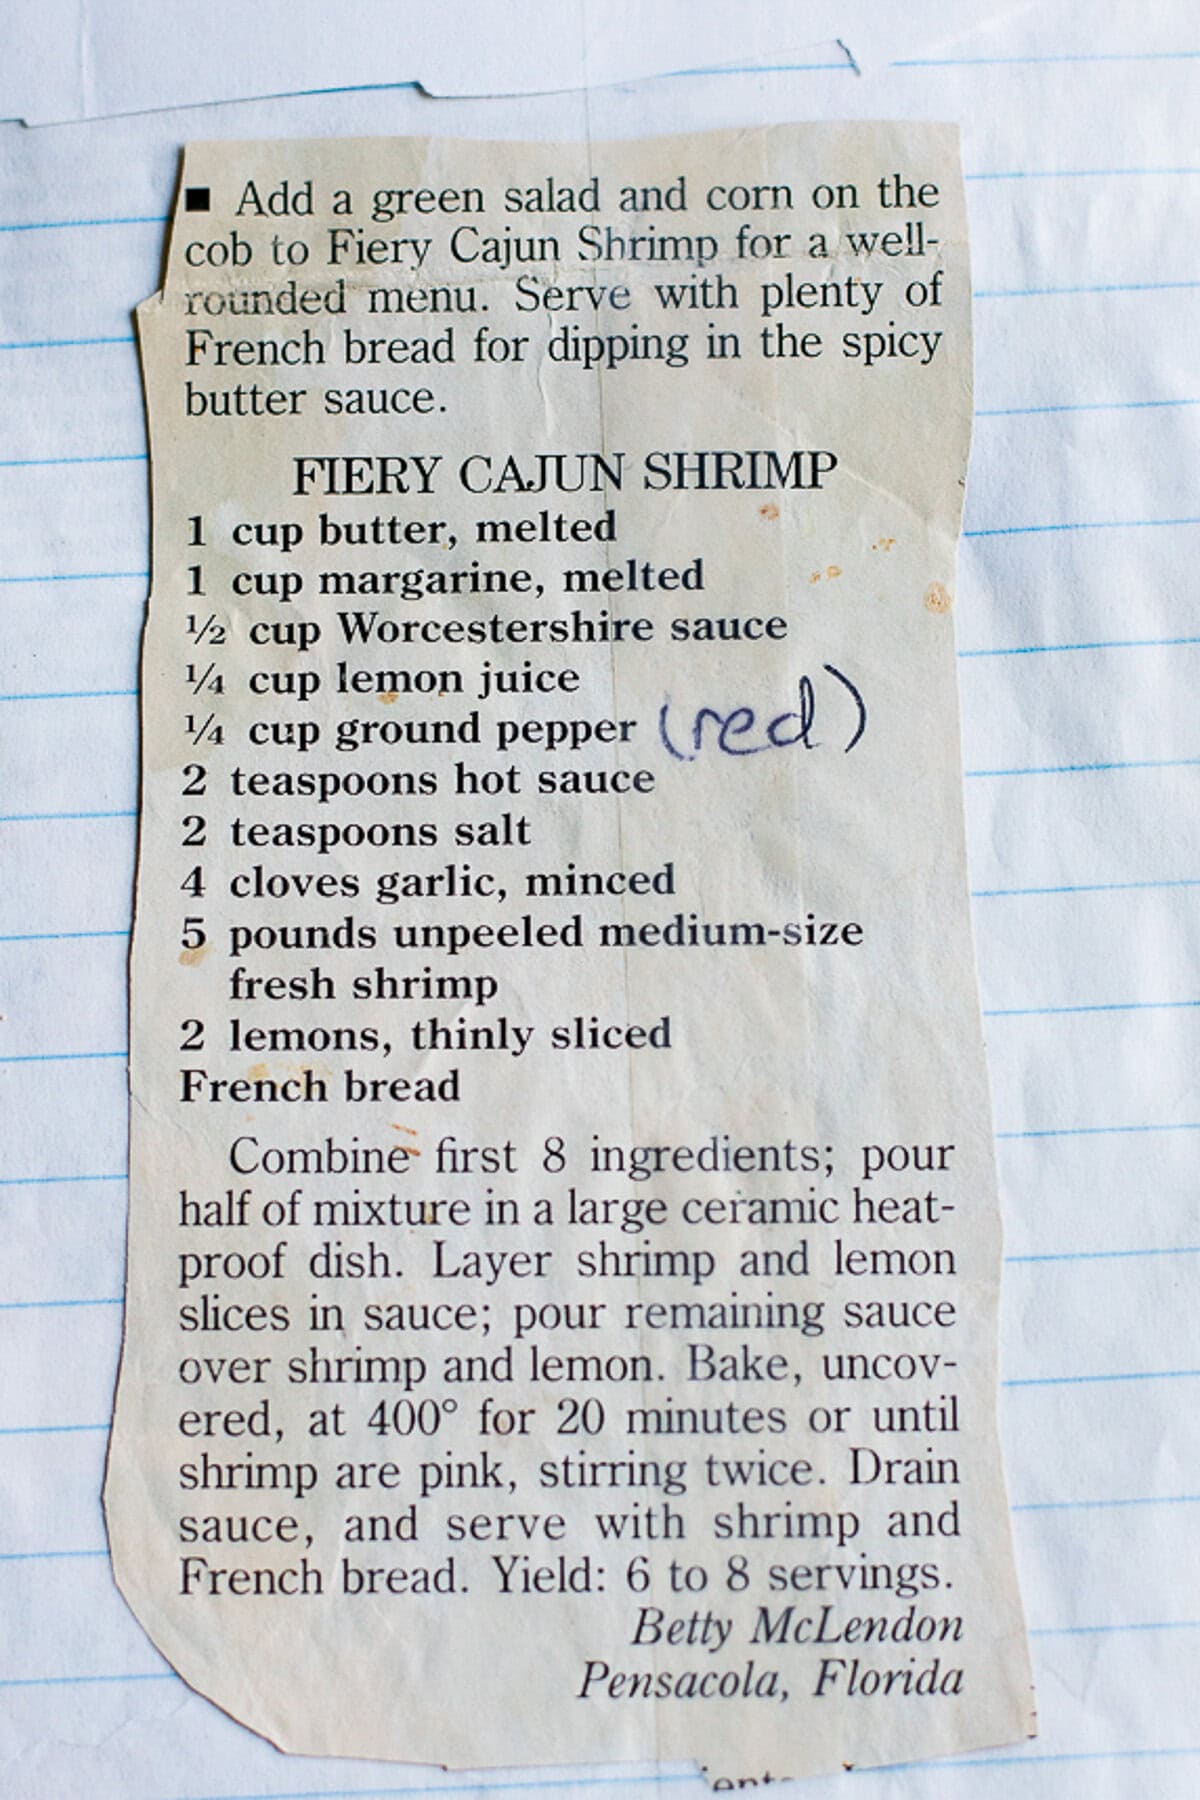 ■ Add a green salad and corn on the
cob to Fiery Cajun Shrimp for a well-
rounded menu. Serve with plenty of
French bread for dipping in the spicy
butter sauce.
FIERY CAJUN SHRIMP
1 cup butter, melted
1 cup margarine, melted
½ cup Worcestershire sauce
¼ cup lemon juice
¼ cup ground pepper (red)
2 teaspoons hot sauce
2 teaspoons salt
4 cloves garlic, minced
5 pounds unpeeled medium-size
fresh shrimp
2 lemons, thinly sliced
French bread
Combine first 8 ingredients; pour
half of mixture in a large ceramic heat-
proof dish. Layer shrimp and lemon
slices in sauce; pour remaining sauce
over shrimp and lemon. Bake, uncov-
ered, at 400° for 20 minutes or until
shrimp are pink, stirring twice. Drain
sauce, and serve with shrimp and
French bread. Yield: 6 to 8 servings.
Betty McLendon
Pensacola, Florida